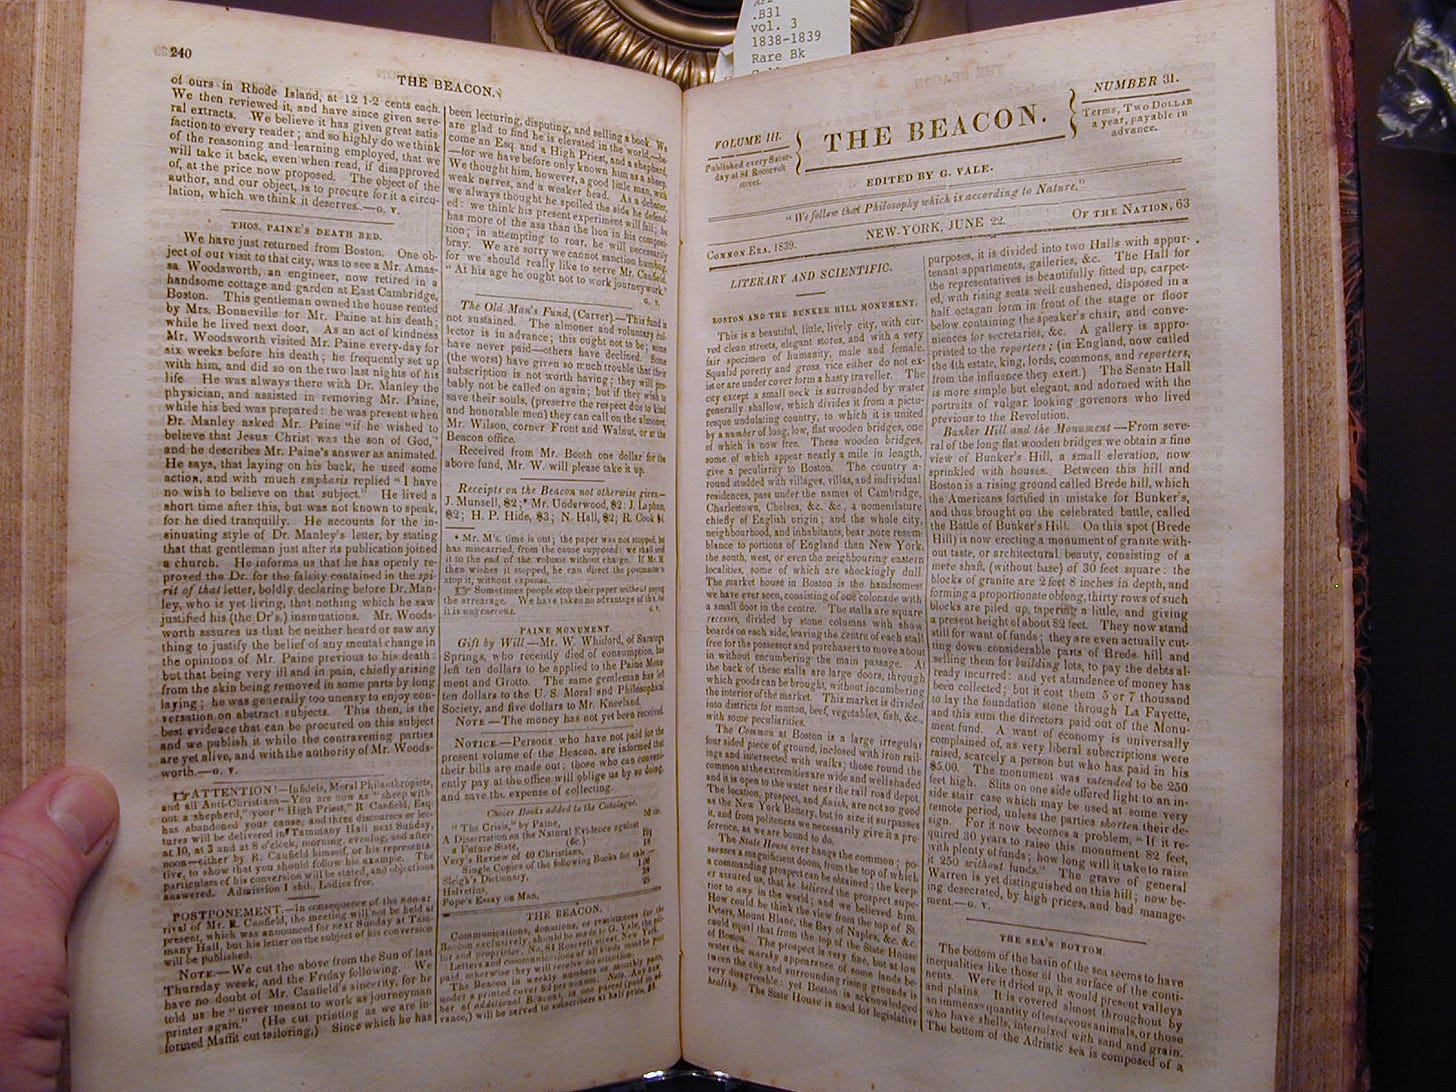 .B31
vol. 3
1838-1839
Rare Bk
240
THE BEACON.
of ours in Rhode Island, at 12 1-2 cents each.
We then reviewed it, and have since given seve-
ral extracts. We believe it has given great satis
faction to every reader; and so highly do we think
of the reasoning and learning employed, that we
will take it back, even when read, if disapproved
of, at the price now proposed. The object of the
author, and our object, is to procure for it a circu-
lation, which we think it deserves.—G. V.
THOS. PAINE'S DEATH BED.
We have just returned from Boston. One ob-
ject of our visit to that city, was to see a Mr. Amas-
sa Woodsworth, an engineer, now retired in a
handsome cottage and garden at East Cambridge,
Boston. This gentleman owned the house rented
by Mrs. Bonneville for Mr. Paine at his death;
while he lived next door. As an act of kindness
Mr. Woodsworth visited Mr. Paine every-day for
six weeks before his death; he frequently set up
with him, and did so on the two last nights of his
life He was always there with Dr. Manley the
physician, and assisted in removing Mr. Paine,
while his bed was prepared: he was present when
Dr. Manley asked Mr. Paine "if he wished to
believe that Jesus Christ was the son of God,"
and he describes Mr. Paine's answer as animated.
He says, that laying on his back, he used some
action, and with much emphasis replied "I have
no wish to believe on that subject." He lived a
short time after this, but was not known to speak,
for he died tranquilly. He accounts for the in-
sinuating style of Dr. Manley's letter, by stating
that that gentleman just after its publication joined
a church. He informs us that he has openly re-
proved the Dr. for the falsity contained in the spi-
rit of that letter, boldly declaring before Dr. Man-
ley, who is yet living, that nothing which he saw
justified his (the Dr's.) insinuations. Mr. Woods-
worth assures us that he neither heard or saw any
thing to justify the belief of any mental change in
the opinions of Mr. Paine previous to his death:
but that being very ill and in pain, chiefly arising
from the skin being removed in some parts by long
laying; he was generally too uneasy to enjoy con-
versation on abstract subjects. This then, is the
best evidence that can be procured on this subject
and we publish it while the contravening parties
are yet alive, and with the authority of Mr. Woods-
worth.—G. V.
☞ATTENTION!—Infidels, Moral Philanthropists,
and all Anti-Christians—You are now as "sheep with-
out a shepherd," your "High Priest," R Canfield, Esq
has abandoned your cause, and three discourses or lec-
tures will be delivered in Tammany Hall next Sunday,
at 10, at 3 and at 8 o'clock, morning, evening, and after-
noon—either by R. Canfield himself, or his representa-
tive, to show that you should follow his example. The
particulars of his conversion will be stated, and objections
answered. Admission 1 shil. Ladies free.
POSTPONEMENT.—In consequence of the non-ar
rival of Mr. R. Canfield, the meeting will not be held at
present, which was announced for next Sunday at Tam-
many Hall, but his letter on the subject of his conversion
will be published.
NOTE.—We cut the above from the Sun of last
Thursday week, and the Friday following. We
have no doubt of Mr. Canfield's sincerity, for he
told us be "never meant to work as journeyman
printer again." (He cut printing as we are in-
formed Maffit cut tailoring.) Since which he has
been lecturing, disputing, and selling a book. We
are glad to find he is elevated in the world,—be-
come an Esq. and a High Priest, and a shepherd,
—for we have before only known him as a sheep.
We thought him, however, a good little man, with
weak nerves, and a weaker head. As a debater,
we always thought he spoiled the side he defend-
ed: we think his present experiment will fail; he
has more of the ass than the lion in his composi-
tion; in attempting to roar, he will necessarily
bray. We are sorry we cannot sanction humbug,
for we should really like to serve Mr. Canfield.
"At his age he ought not to work journeywork"
G. V.
The Old Man's Fund, (Carver).—This fund is
not sustained. The almoner and voluntary col-
lector is in advance; this ought not to be; some
have never paid—others have declined. Some
(the worst) have given so much trouble that their
subscription is not worth having; they will pro-
bably not be called on again; but if they wish to
save their souls, (preserve the respect due to kind
and honorable men) they can call on the almoner,
Mr. Wilson, corner Front and Walnut, or at the
Beacon office.
Received from Mr. Booth one dollar for the
above fund, Mr. W. will please take it up.
Receipts on the Beacon not otherwise given—
J. Munsell, $2;* Mr. Underwood, $2: J. Lapham,
$2; H. P. Hide, $3; N. Hall, $2; R. Cook $1
* Mr. M's. time is out; the paper was not stopped, he
has miscarried, from the cause supposed: we shall send
it to the end of the volume without charge. If Mr. M.
then wishes it stopped, he can direct the postmaster to
stop it, without expense.
☞ Sometimes people stop their paper without paying
the arrearage. We have taken no advantage of this but
it is ungenerous. G. V.
PAINE MONUMENT
Gift by Will—Mr. W. Whiford, of Saratoga
Springs, who recently died of consumption, has
left ten dollars to be applied to the Paine Monu-
ment and Grotto. The same gentleman has left
ten dollars to the U. S. Moral and Philosophical
Society, and five dollars to Mr. Kneeland.
NOTE—The money has not yet been received.
NOTICE.—Persons who have not paid for the
present volume of the Beacon, are informed that
their bills are made out: those who can conveni-
ently pay at the office will oblige us by so doing,
and save the expense of collecting.
Choice Books added to the Catalogue.
"The Crisis," by Paine,
A Dissertation on the Natural Evidence against
a Future State, (6c.)
Very's Review of 40 Christians,
Single Copies of the following Books for sale
Sleigh's Dictionary,
Helvetius,
Pope's Essay on Man,
THE BEACON.
Communications, donations, or remittances for the
Beacon exclusively, should be made to G. Vale, the edi-
tor and proprietor, No. 84 Roosvelt street, New York.
Letters and communications of all kinds must be post
paid, otherwise they will receive no attention.
The Beacon in weekly numbers or monthly parts,
under a printed cover $2 per annum. Note. Any num-
ber of additional Beacons, in one parcel (paid in ad-
vance,) will be served to subscribers at half price, $1.
VOLUME III.
Published every Satur-
day at 84 Roosvelt
street.
THE BEACON.
NUMBER 31.
Terms, TWO DOLLAR
a year, payable in
advance.
EDITED BY G. VALE.
"We follow that Philosophy which is according to Nature."
COMMON ERA, 1839.
NEW-YORK, JUNE 22.
OF THE NATION, 63
LITERARY AND SCIENTIFIC.
BOSTON AND THE BUNKER HILL MONUMENT.
This is a beautiful, little, lively city, with cur-
ved clean streets, elegant stores, and with a very
fair specimen of humanity, male and female.
Squalid poverty and gross vice either do not ex-
ist or are under cover form a hasty traveller. The
city except a small neck is surrounded by water
generally shallow, which divides it from a pictu-
resque undulating country, to which it is united
by a number of long, low, flat wooden bridges, one
of which is now free. These wooden bridges,
some of which appear nearly a mile in length,
give a peculiarity to Boston. The country a-
round studded with villages, villas, and individual
residences, pass under the names of Cambridge,
Charlestown, Chelsea, &c. &c., a nomenclature
chiefly of English origin; and the whole city,
neighbourhood, and inhabitants, bear more resem-
blance to portions of England than New York,
the south, west, or even the neighbouring eastern
localities, some of which are shockingly dull.
The market house in Boston is the handsomest
we have ever seen, consisting of one colonade with
a small door in the centre. The stalls are square
recesses, divided by stone columns with show
boards on each side, leaving the centre of each stall
free for the possessor and purchasers to move about
in without encumbering the main passage. At
the back of these stalls are large doors, through
which goods can be brought, without incumbering
the interior of the market. This market is divided
into districts for mutton, beef, vegetables, fish, &c.,
with some peculiarities.
The Common at Boston is a large irregular
four sided piece of ground, inclosed with iron rail-
ings and intersected with walks; those round the
common at the extremities are wide and well shaded
and it is open to the water near the rail road depot.
The location, prospect, and finish, are not so good
as the New York Battery, but in size it surpasses
it, and from politeness we necessarily give it a pre-
ference, as we are bound to do.
The State House over hangs the common; po-
ssesses a magnificent doom, from the top of which
a commanding prospect can be obtained; the keep-
er assured us, that he believed the prospect supe-
rior to any in the world; and we believed him.
How could he think the view from the top of St.
Peters, Mount Blanc, the Bay of Naples, &c. &c.
could equal that from the top of the State House
of Boston. The prospect is very fine, but at low
water the marshy appearance of some lands be-
tween the city and surrounding rising grounds is
very disagreeable: yet Boston is acknowledged
healthy. The State House is used for legislative
purposes, it is divided into two Halls with appur-
tenant appartments, galleries, &c. The Hall for
the representatives is beautifully fitted up, carpet-
ed, with rising seats well cushened, disposed in a
half octagan form in front of the stage or floor
below containing the speaker's chair, and conve-
niences for secretaries, &c. A gallery is appro-
printed to the reporters; (in England, now called
the 4th estate, king, lords, commons, and reporters,
from the influence they exert.) The Senate Hall
is more simple but elegant, and adorned with the
portraits of vulgar, looking govenors who lived
previous to the Revolution.
Bunker Hill and the Monument—From seve-
ral of the long flat wooden bridges we obtain a fine
view of Bunker's Hill, a small elevation, now
sprinkled with houses. Between this hill and
Boston is a rising ground called Brede hill, which
the Americans fortified in mistake for Bunker's,
and thus brought on the celebrated battle, called
the Battle of Bunker's Hill. On this spot (Brede
Hill) is now erecting a monument of granite with-
out taste, or architectural beauty, consisting of a
mere shaft, (without base) of 30 feet square: the
blocks of granite are 2 feet 8 inches in depth, and
forming a proportionate oblong, thirty rows of such
blocks are piled up, tapering a little, and giving
a present height of about 82 feet. They now stand
still for want of funds; they are even actually cut-
ting down considerable parts of Brede hill and
selling them for building lots, to pay the debts al-
ready incurred: and yet abundence of money has
been collected; but it cost them 5 or 7 thousand
to lay the foundation stone through La Fayette,
and this sum the directors paid out of the Monu-
ment fund. A want of economy is universally
complained of, as very liberal subscriptions were
raised, scarcely a person but who has paid in his
$5.00. The monument was intended to be 250
feet high. Slits on one side offered light to an in-
side stair case which may be used at some very
remote period, unless the parties shorten their de-
sign. For it now becomes a problem, "If it re-
quired 30 years to raise this monument 82 feet,
with plenty of funds; how long will it take to raise
it 250 without funds." The grave of general
Warren is yet distinguished on this hill; now be-
ing desecrated, by high prices, and bad manage-
ment.—G. V.
THE SEA'S BOTTOM.
The bottom of the basin of the sea seems to have
inequalities like those of the surface of the conti-
nents. Were it dried up, it would present valleys
and plains. It is covered almost throughout by
an immense quantity of testaceous animals, or those
who have shells, intermixed with sand and grain.
The bottom of the Adriatic sea is composed of a